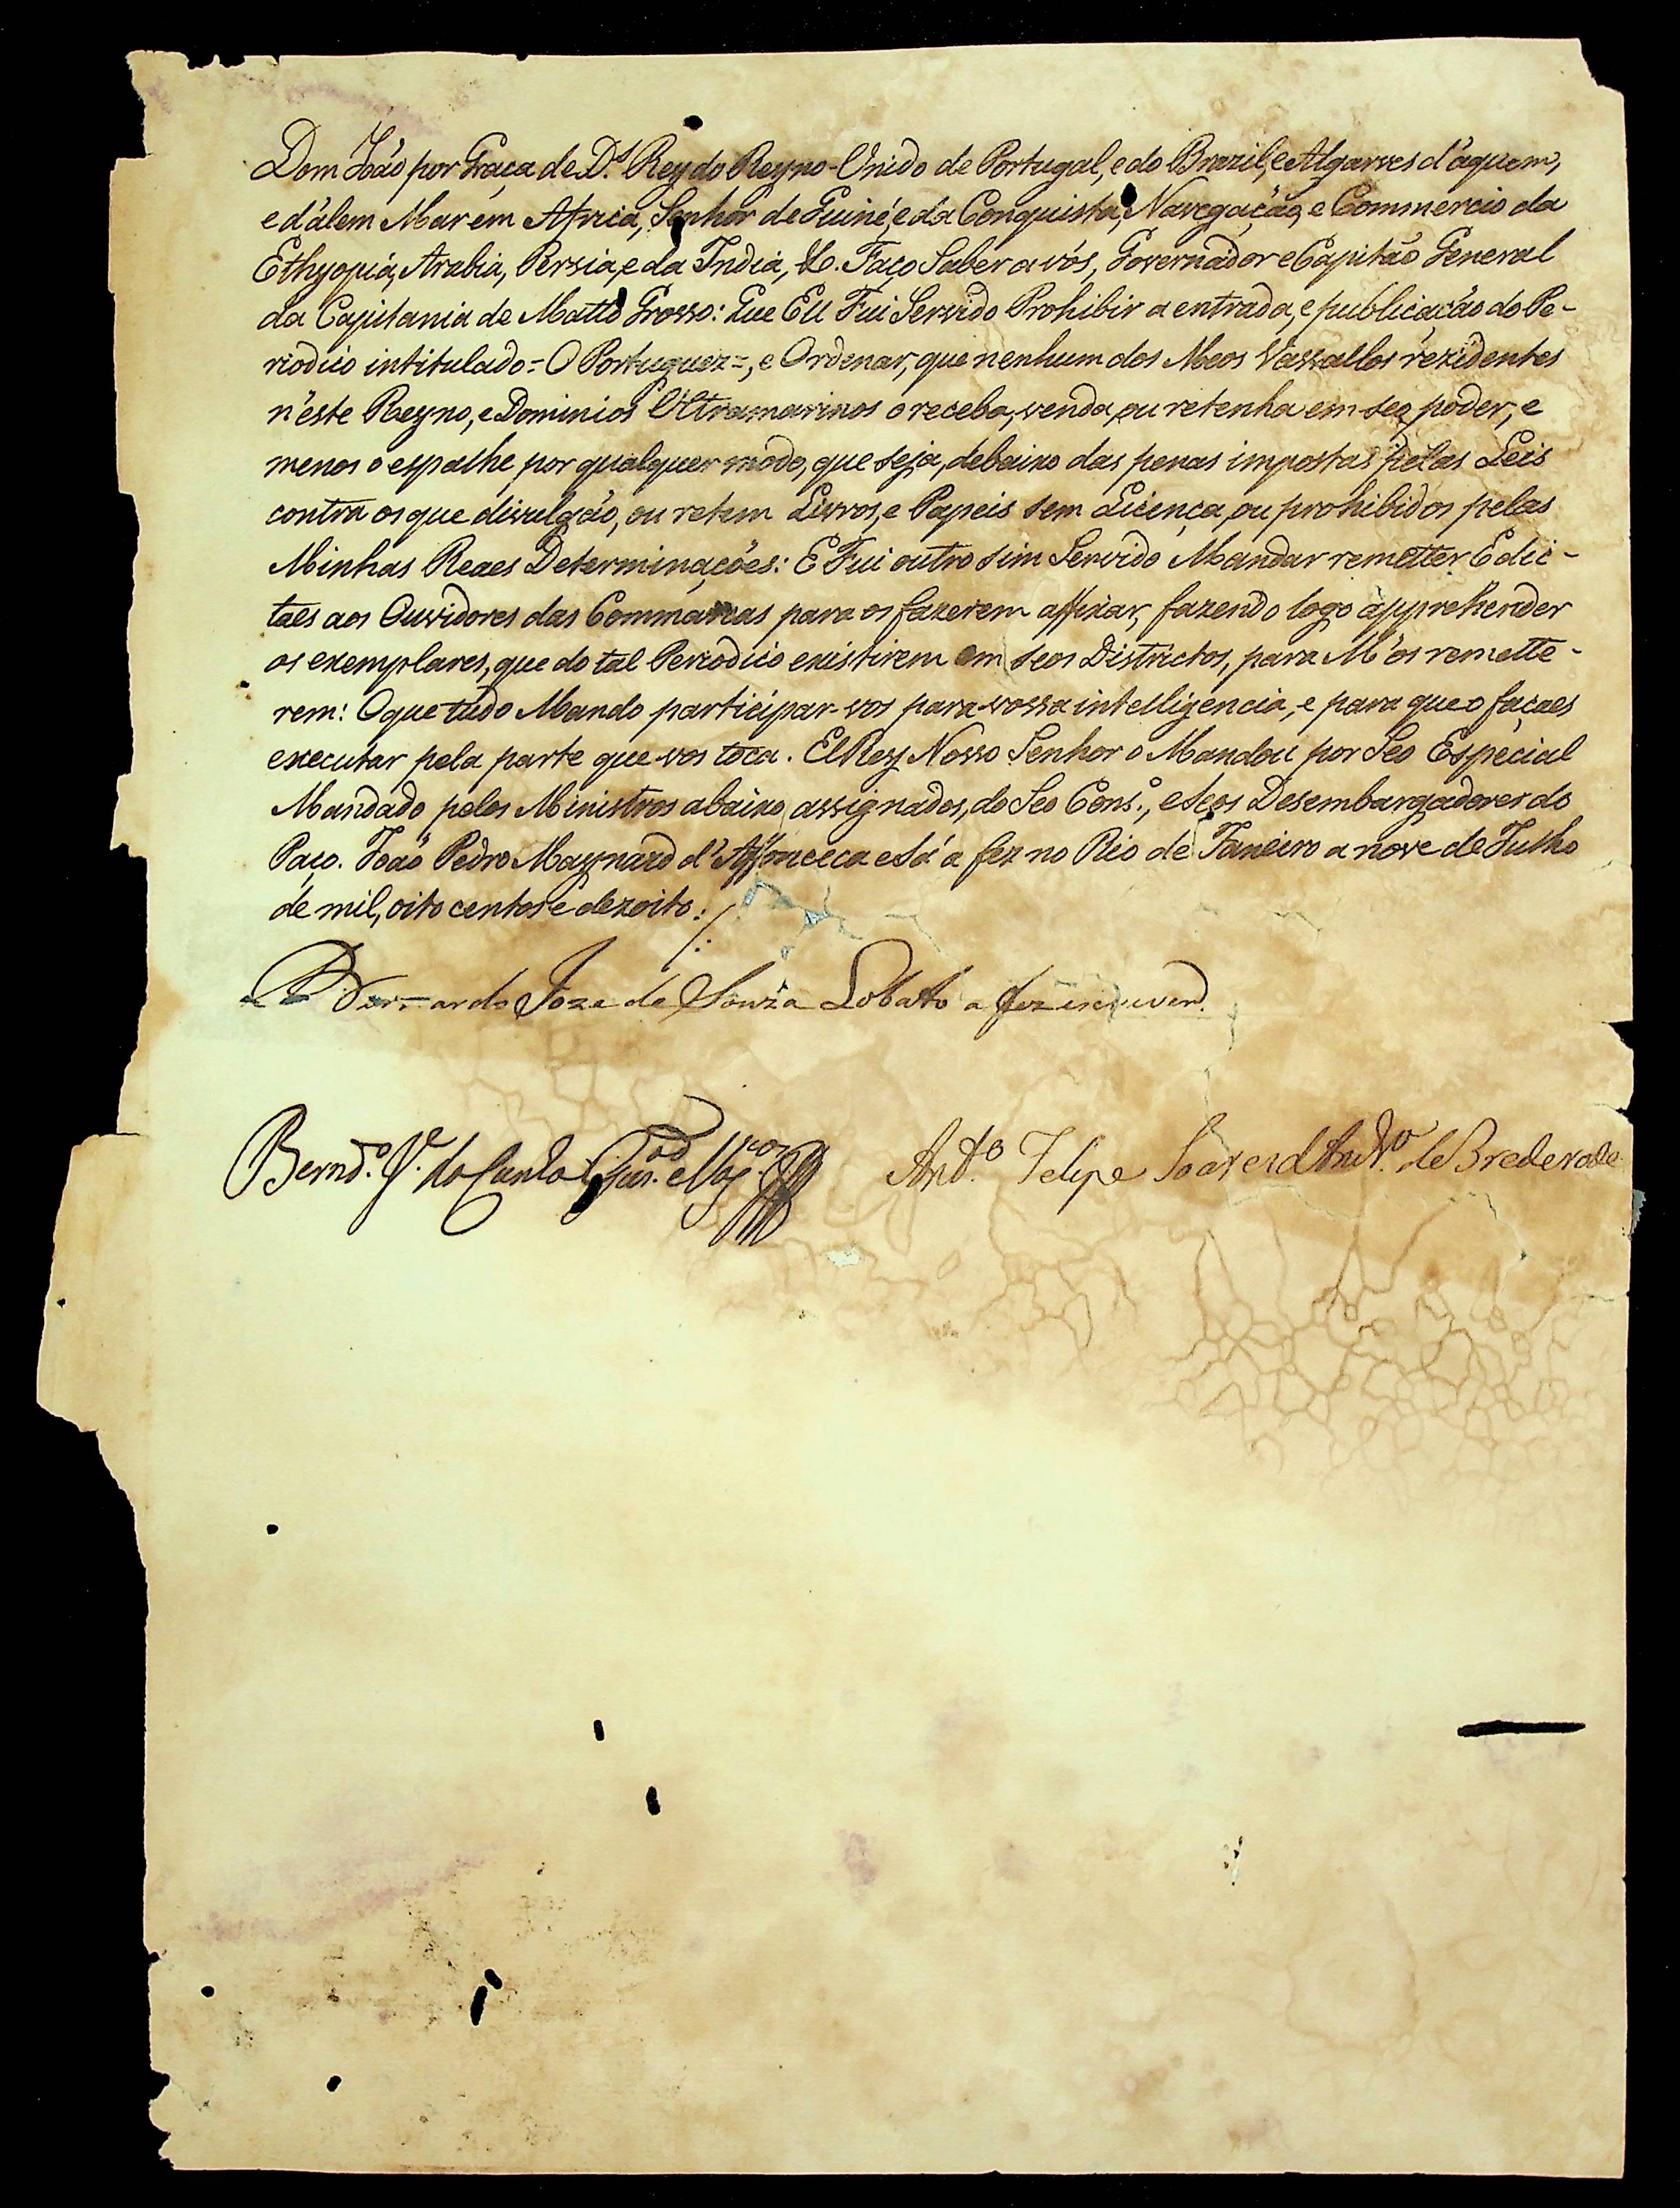 Dom João por Graça de D.s Rey do Reyno-Unido de Portugal, e do Brazil, e Algarves d'aquem,
e d'alem Mar em Africa, Senhor de Guiné, e da Conquista, Navegação, e Commercio da
Ethyopia, Arabia, Persia, e da India, &. Faço Saber a vós, Governador e Capitão General
da Capitania de Matto Grosso: Que EU Fui Servido Prohibir a entrada, e publicação do Pe-
riodico intitulado = O Portuguez =, e Ordenar, que nenhum dos Meos Vassallos rezidentes
n'este Reyno, e Dominios Ultramarinos o receba, venda, ou retenha em seo poder, e
menos o espalhe por qualquer modo, que seja, debaixo das penas impostas pelas Leis
contra os que divulgão, ou retem Livros, e Papeis sem Licença, ou prohibidos pelas
Minhas Reaes Determinações: E Fui outro sim Servido Mandar remetter Edic-
taes aos Ouvidores das Commarcas para os fazerem affixar, fazendo logo apprehender
os exemplares, que do tal Periodico existirem em seos Districtos, para M'os remette-
rem: O que tudo Mando participar-vos para vossa intelligencia, e para que o façaes
executar pela parte que vos toca. ElRey Nosso Senhor o Mandou por Seo Especial
Mandado pelos Ministros abaixo assignados, do Seo Cons.o, e Seos Desembargadores do
Paço. João Pedro Maynard d'Affonceca e Sá a fez no Rio de Janeiro a nove de Julho
de mil, oito centos e dezoito :/:
Bernardo Joze de Souza Lobato a fez escrever.
Bernd.o Je. da Cunha Gusão e Vas.cos
Ant.o Felipe Soares d'Andr.e de Brederode